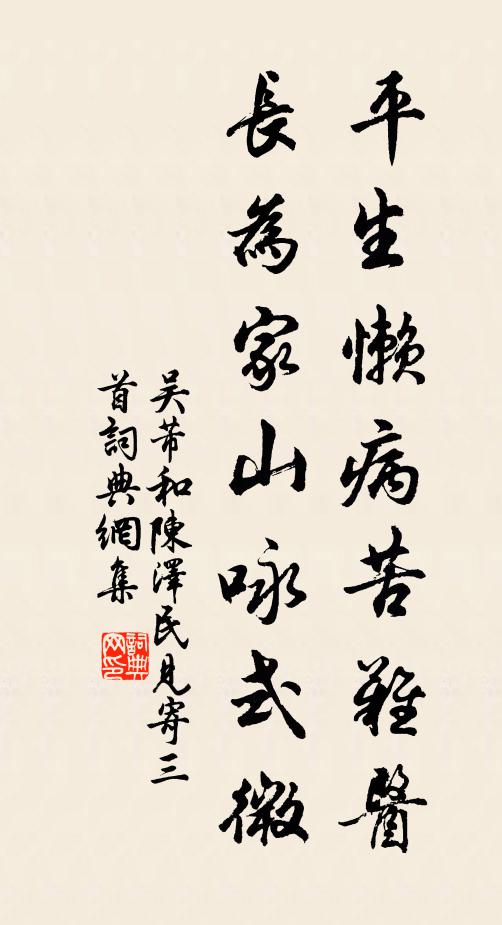 平生懶病苦難醫
長為家山咏式微
吴芾和陳澤民見寄三
首詞典網集
詞典
网印